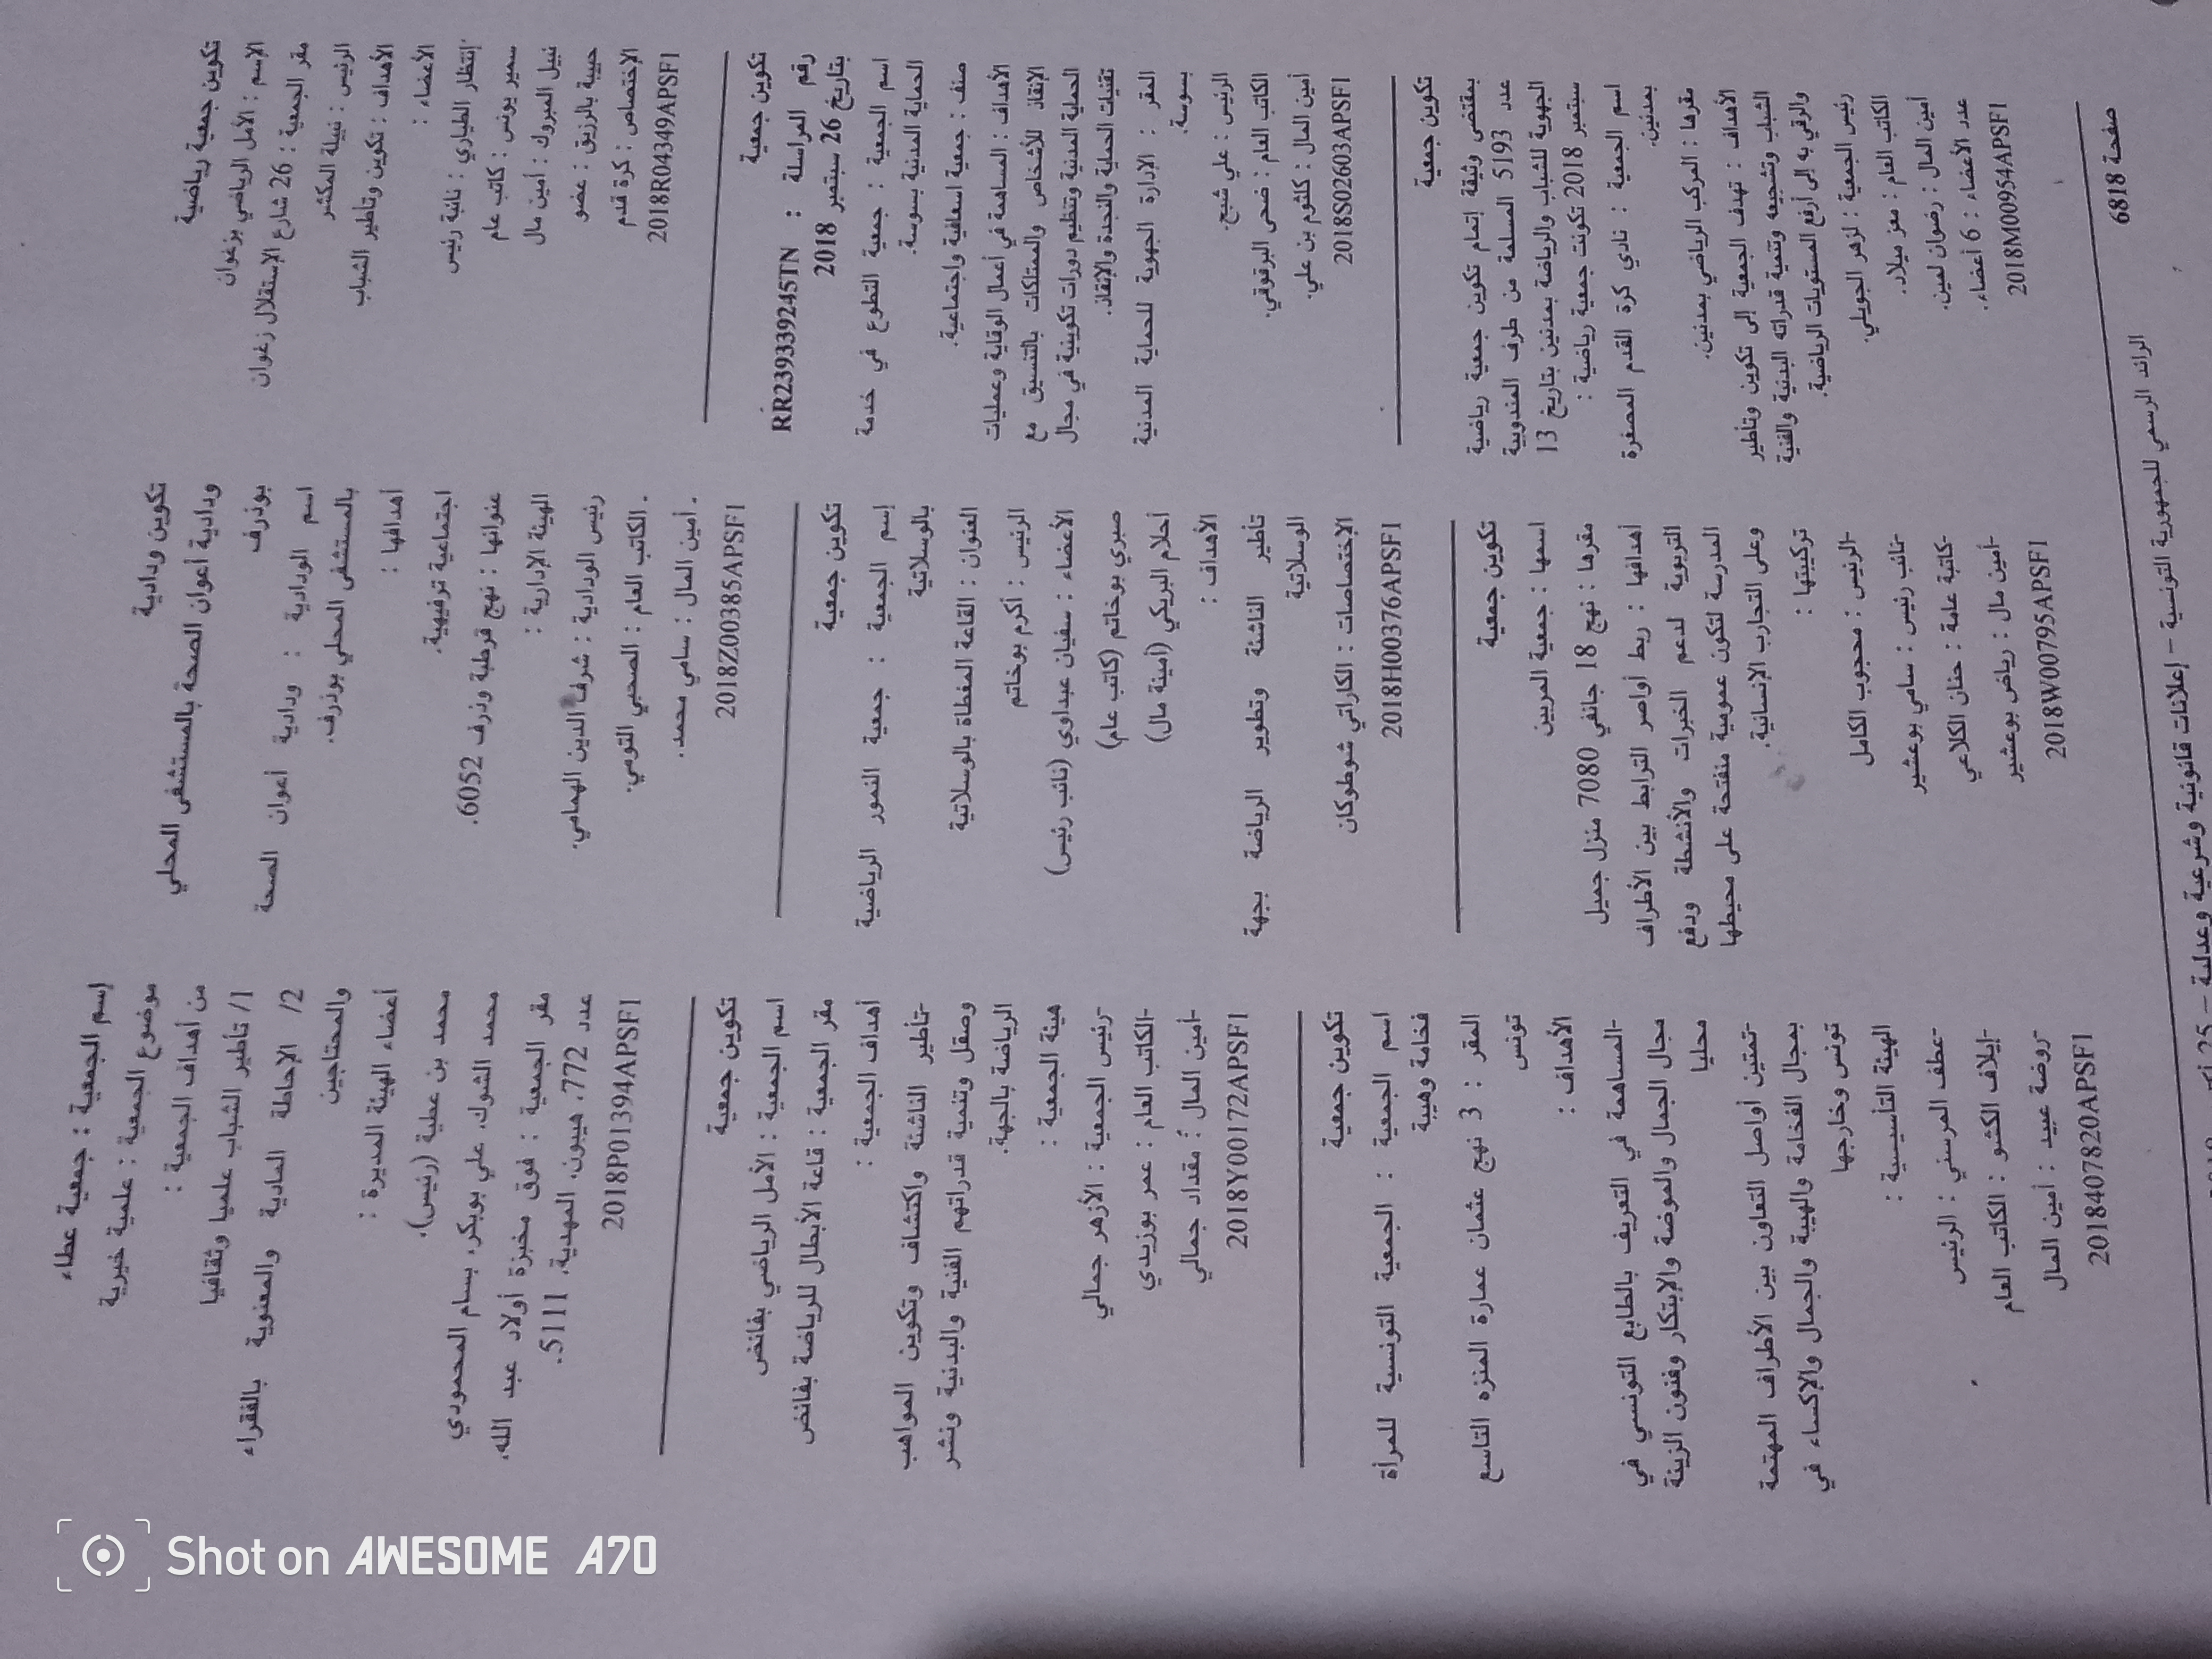 تكوين جمعية رياضية
الإسم : الأمل الرياضي بزغوان
مقر الجمعية : 26 شارع الإستقلال زغوان
الرئيس : نبيلة المكشر
الأهداف : تكوين وتأطير الشباب
الأعضاء :
إنتظار الطياري : نائبة رئيس
سمير يونس : كاتب عام
نبيل المبروك : أمين مال
حبيبة بالرزيق : عضو
الإختصاص : كرة قدم
2018R04349APSF1
تكوين جمعية
رقم المراسلة : RR239339245TN
بتاريخ 26 سبتمبر 2018
اسم الجمعية : جمعية التطوع في خدمة
الحماية المدنية بسوسة.
صنف : جمعية اسعافية واجتماعية.
الأهداف : المساهمة في أعمال الوقاية وعمليات
الإنقاذ للأشخاص والممتلكات بالتنسيق مع
الحماية المدنية وتنظيم دورات تكوينية في مجال
تقنيات الحماية والنجدة والإنقاذ.
المقر : الإدارة الجهوية للحماية المدنية
بسوسة.
الرئيس : علي شيخ.
الكاتب العام : ضحى البرقوقي.
أمين المال : كلثوم بن علي.
2018S02603APSF1
تكوين جمعية
بمقتضى وثيقة إتمام تكوين جمعية رياضية
عدد 5193 المسلمة من طرف المندوبية
الجهوية للشباب والرياضة بمدنين بتاريخ 13
سبتمبر 2018 تكونت جمعية رياضية :
اسم الجمعية : نادي كرة القدم المصغرة
بمدنين.
مقرها : المركب الرياضي بمدنين.
الأهداف : تهدف الجمعية إلى تكوين وتأطير
الشباب وتشجيعه وتنمية قدراته البدنية والفنية
والرقي به إلى أرفع المستويات الرياضية.
رئيس الجمعية : لزهر الجويلي.
الكاتب العام : معز ميلاد.
أمين المال : رضوان لمين.
عدد الأعضاء : 6 أعضاء.
2018M00954APSF1
تكوين ودادية
ودادية أعوان الصحة بالمستشفى المحلي
بوذرف
اسم الودادية : ودادية أعوان الصحة
بالمستشفى المحلي بوذرف.
أهدافها :
اجتماعية ترفيهية.
عنوانها : نهج قرطبة وذرف 6052.
الهيئة الإدارية :
رئيس الودادية : شرف الدين الهمامي.
. الكاتب العام : الصحبي التومي.
. أمين المال : سامي محمد.
2018Z00385APSF1
تكوين جمعية
إسم الجمعية : جمعية النمور الرياضية
بالوسلاتية
العنوان : القاعة المغطاة بالوسلاتية
الرئيس : أكرم بوخاتم
الأعضاء : سفيان عبداوي (نائب رئيس)
صبري بوخاتم (كاتب عام)
أحلام البريكي (أمينة مال)
الأهداف :
تأطير الناشئة وتطوير الرياضة بجهة
الوسلاتية
الإختصاصات : الكاراتي شوطوكان
2018H00376APSF1
تكوين جمعية
اسمها : جمعية المربين
مقرها : نهج 18 جانفي 7080 منزل جميل
أهدافها : ربط أواصر الترابط بين الأطراف
التربوية لدعم الخبرات والأنشطة ودفع
المدرسة لتكون عمومية منفتحة على محيطها
وعلى التجارب الإنسانية.
تركيبتها :
-الرئيس : محجوب الكامل
-نائب رئيس : سامي بوعشير
-كاتبة عامة : حنان الكلاعي
-أمين مال : رياض بوعشير
2018W00795APSF1
إسم الجمعية : جمعية عطاء
موضوع الجمعية : علمية خيرية
من أهداف الجمعية :
1/ تأطير الشباب علميا وثقافيا
2/ الإحاطة المادية والمعنوية بالفقراء
والمحتاجين
أعضاء الهيئة المديرة :
محمد بن عطية (رئيس)،
محمد الشوك، علي بوبكر، بسام المحمودي
مقر الجمعية : فوق مخبزة أولاد عبد الله،
عدد 772، هيبون، المهدية، 5111.
2018P01394APSF1
تكوين جمعية
اسم الجمعية : الأمل الرياضي بفانض
مقر الجمعية : قاعة الأبطال للرياضة بفانض
أهداف الجمعية :
-تأطير الناشئة واكتشاف وتكوين المواهب
وصقل وتنمية قدراتهم الفنية والبدنية ونشر
الرياضة بالجهة.
هيئة الجمعية :
-رئيس الجمعية : الأزهر جمالي
-الكاتب العام : عمر بوزيدي
-أمين المال : مقداد جمالي
2018Y00172APSF1
تكوين جمعية
اسم الجمعية : الجمعية التونسية للمرأة
فخامة وهيبة
المقر : 3 نهج عثمان عمارة المنزه التاسع
تونس
الأهداف :
-المساهمة في التعريف بالطابع التونسي في
مجال الجمال والموضة والابتكار وفنون الزينة
محليا
-تمتين أواصل التعاون بين الأطراف المهتمة
بمجال الفخامة والهيبة والجمال والإكساء في
تونس وخارجها
الهيئة التأسيسية :
-عطف المرسني : الرئيس
-إيلاف الكشو : الكاتب العام
-روضة عبيد : أمين المال
201840 7820APSF1
صفحة 6818
الرائد الرسمي للجمهورية التونسية – إعلانات قانونية وشرعية وعدلية – 25
Shot on AWESOME A70